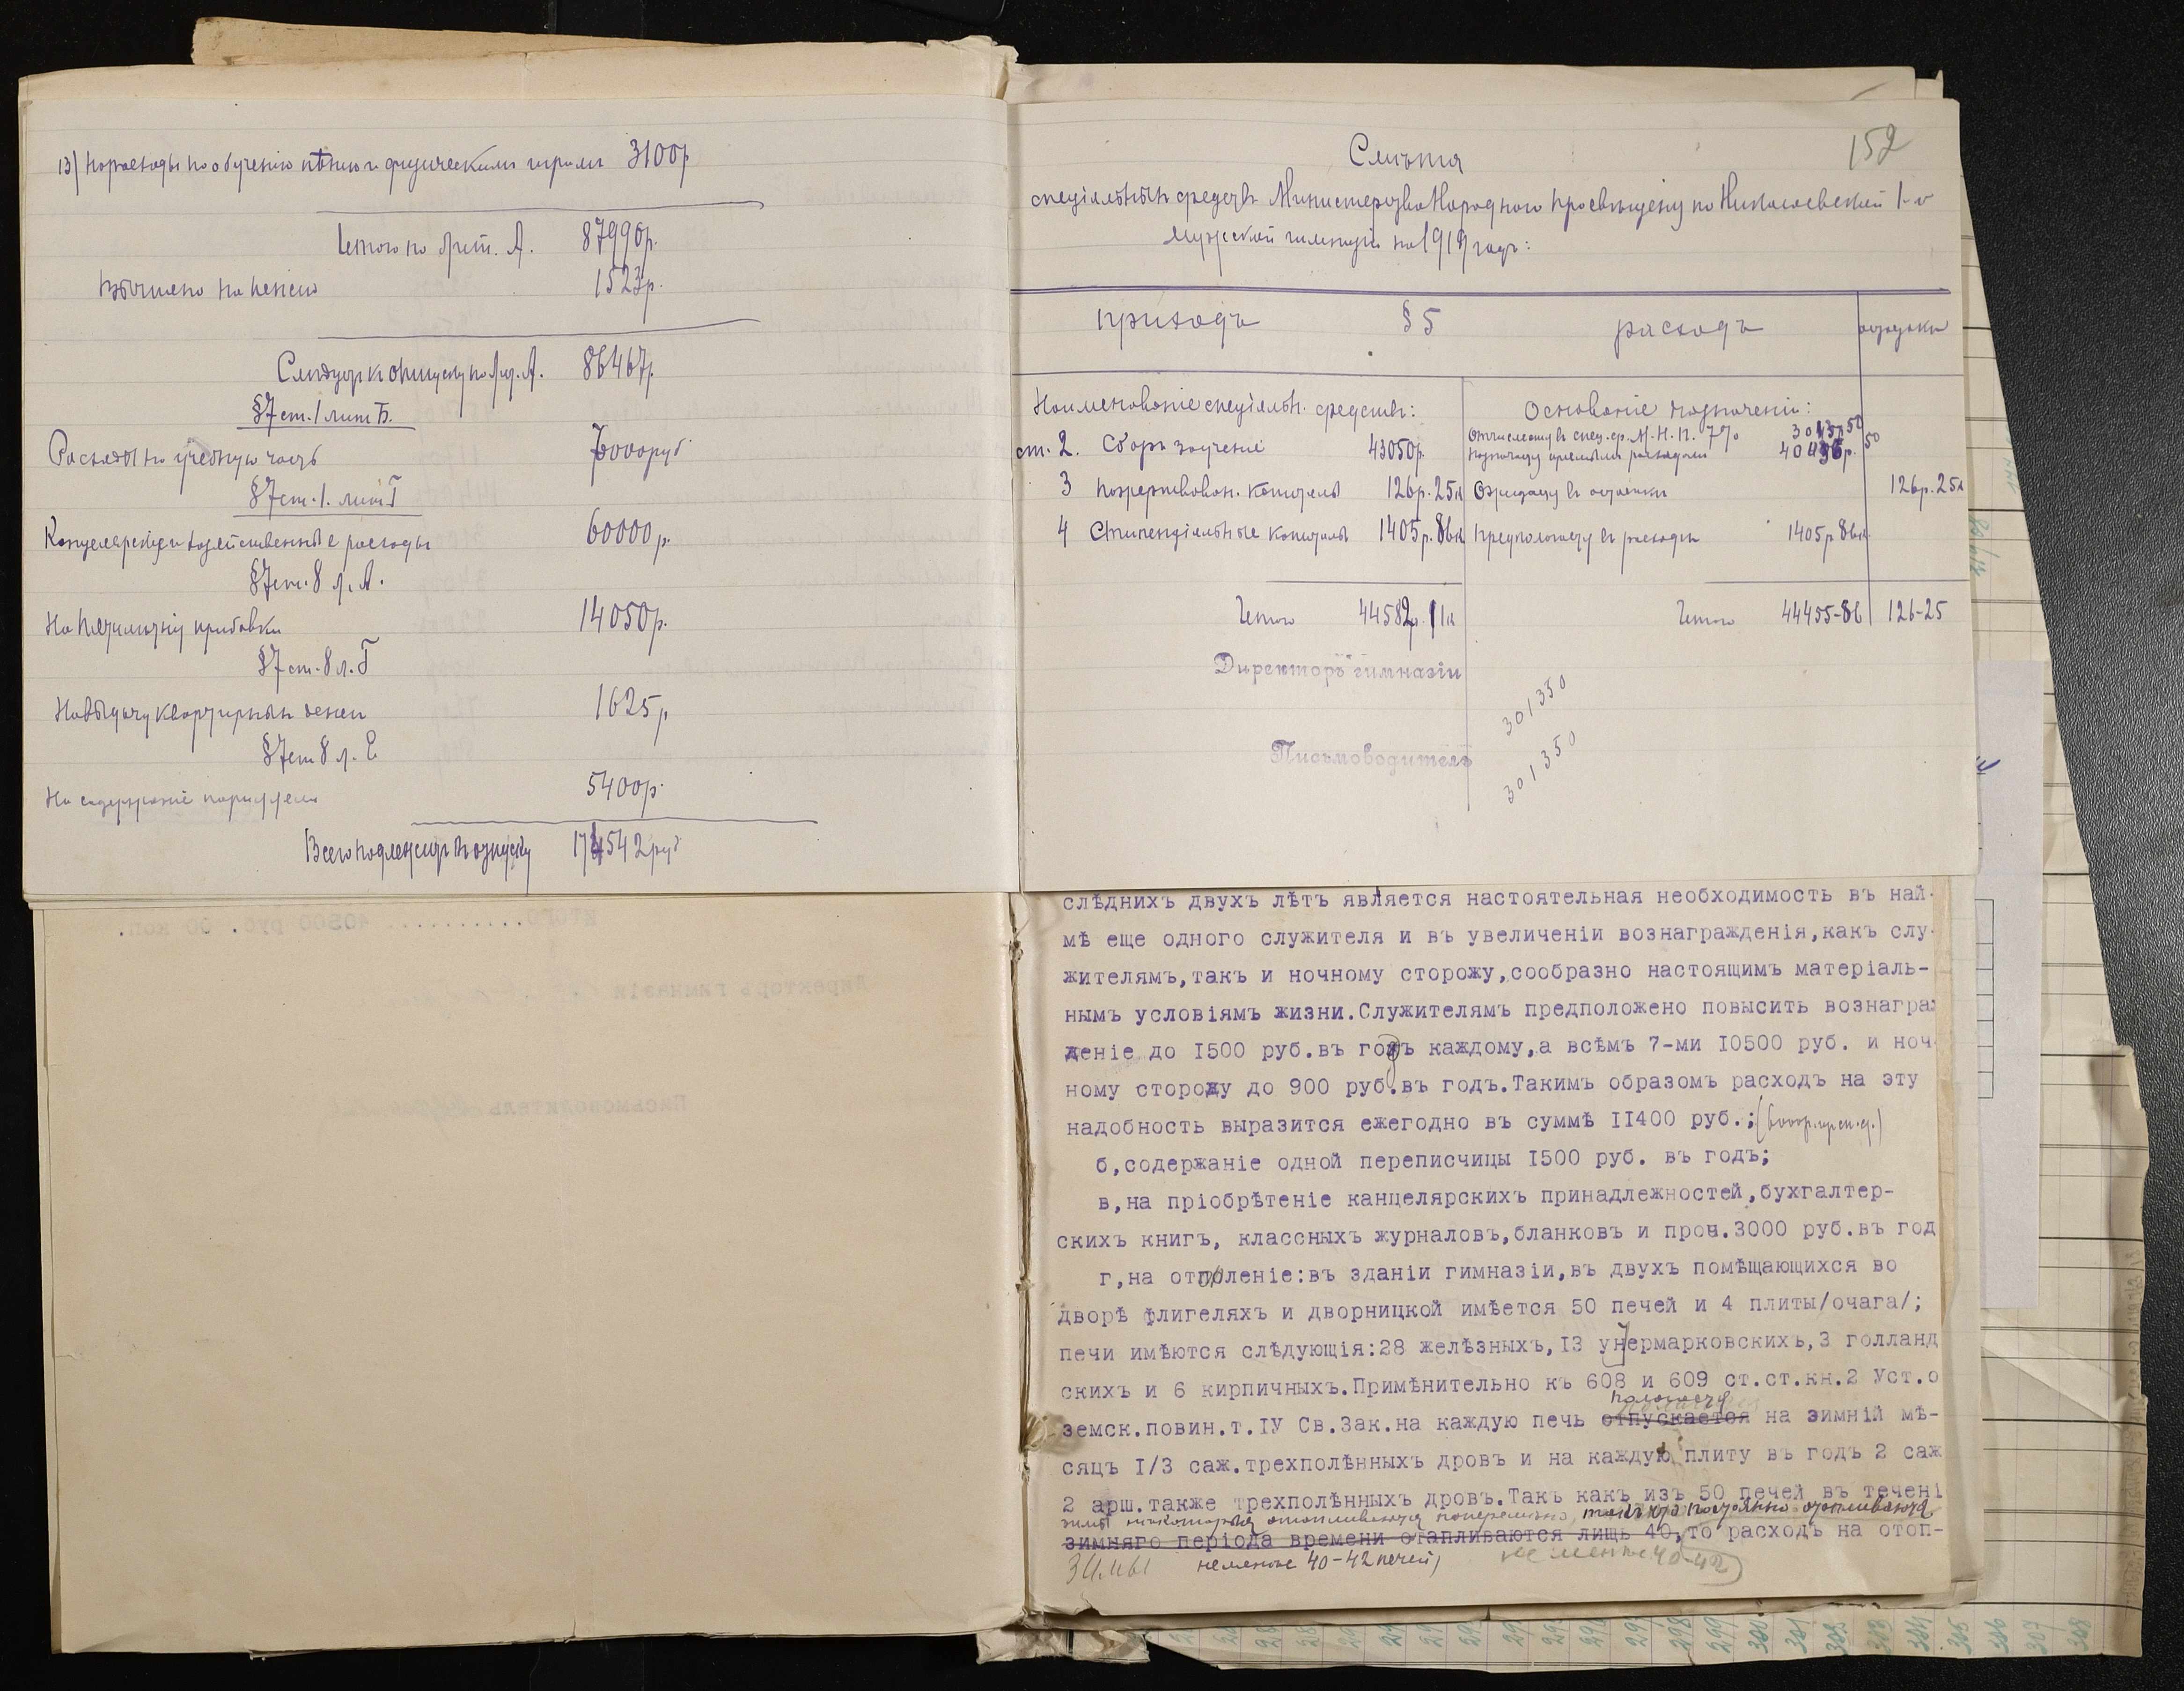 13) На расходы по обученію пѣнію и физическимъ играмъ 3100р.
Итого по лит. А. 87990р.
на пенсію 1523р.
Слѣдуетъ къ отпуску по лит. А. 86467р.
§7 ст. 1 лит Б.
Расходы на учебную часть 7000руб
§7 ст. 1. лит Г
Канцелярскіе и хозяйственные расходы 60000р.
§7 ст. 8 л. А.
На пятилѣтнія прибавки 14050р.
§7 ст. 8 л. Г
На выдачу квартирныхъ денегъ 1625р
§7 ст 8 л. Е
На содержаніе параллели 5400р.
Всего подлежитъ къ отпуску 174542 руб
152
Смѣта
спеціальныхъ средствъ Министерства Народнаго Просвѣщенія по Николаевской 1-й
мужской гимназіи на 1919 годъ:
приходъ § 5 расходъ остатки
Наименованіе спеціальн. средствъ: Основаніе назначенія:
Отчисленіе въ спец. ср. М. Н. П. 7% 3013 50
ст. 2. Сборъ за ученіе 43050р. расходами 40036р. 50
3 Пожертвован. капиталы 126р. 25к Ожидается въ остаткѣ 126р. 25к
4 Стипендіальные капиталы 1405р. 86к Предполагается въ расходъ 1405р 86к
Итого 44582р. 11к Итого 44455-86 126-25
Директоръ гимназіи
301350
Письмоводитель
301350
слѣднихъ двухъ лѣтъ является настоятельная необходимость въ най-
мѣ еще одного служителя и въ увеличеніи вознагражденія,какъ слу-
жителямъ,такъ и ночному сторожу,сообразно настоящимъ матеріаль-
нымъ условіямъ жизни.Служителямъ предположено повысить вознаграж
деніе до I500 руб.въ годъ каждому,а всѣмъ 7-ми I0500 руб. и ноч-
ному сторожу до 900 руб.въ годъ.Такимъ образомъ расходъ на эту
надобность выразится ежегодно въ суммѣ II400 руб.;
б,содержаніе одной переписчицы I500 руб. въ годъ;
в,на пріобрѣтеніе канцелярскихъ принадлежностей,бухгалтер-
скихъ книгъ, классныхъ журналовъ,бланковъ и проч.3000 руб.въ год
г,на отопленіе:въ зданіи гимназіи,въ двухъ помѣщающихся во
дворѣ флигеляхъ и дворницкой имѣется 50 печей и 4 плиты/очага/;
печи имѣются слѣдующія:28 желѣзныхъ,I3 унтермарковскихъ,3 голланд
скихъ и 6 кирпичныхъ.Примѣнительно къ 608 и 609 ст.ст.кн.2 Уст.о
полагается
земск.повин.т.IУ Св.Зак.на каждую печь отпускается на зимній мѣ-
сяцъ I/3 саж.трехполѣнныхъ дровъ и на каждую плиту въ годъ 2 саж
2 арш.также трехполѣнныхъ дровъ.Такъ какъ изъ 50 печей въ течені
зимы нѣкоторыя отапливаются поперемѣнно, такъ что постоянно отапливаются
зимняго періода времени отапливаются лищь 40,то расходъ на отоп-
зимы не менѣе 40-42 печей, не менѣе 40-42